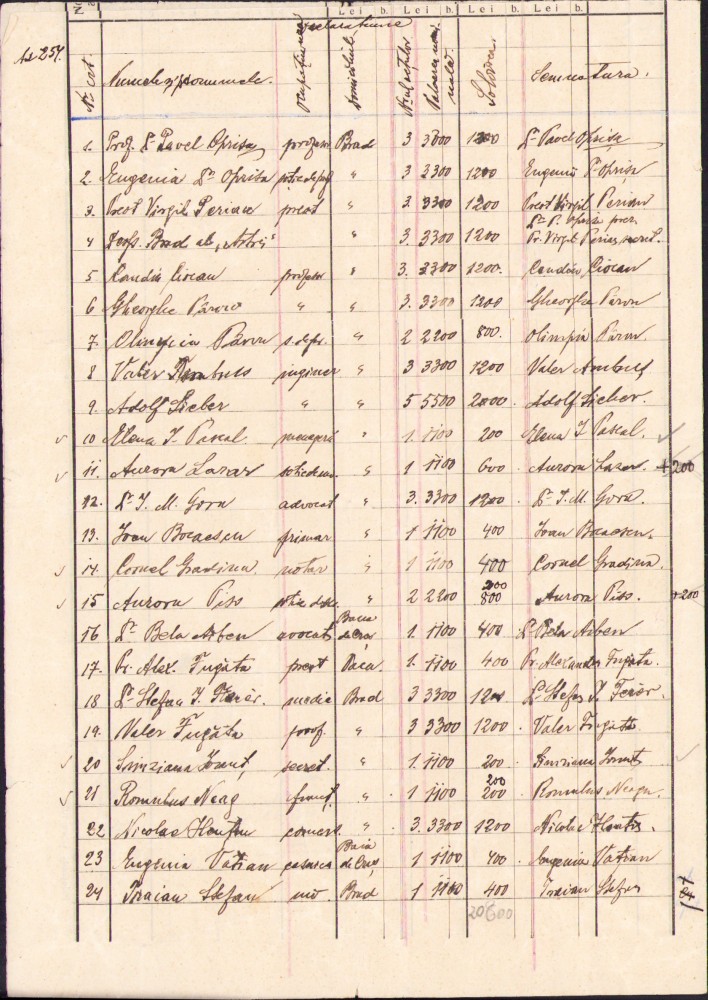 Lei b. Lei b. Lei b. Lei b.
No. crt. Numele și pronumele. Domiciliul Semnatura.
1. Prof. Dr. Pavel Oprișa profesor Brad 3 3300 1200 Dr. Pavel Oprișa
2. Eugenia Dr. Oprișa " 3 3300 1200 Eugenia Dr. Oprișa
3. Preot Virgil Perian preot " 3 3300 1200 Preot Virgil Perian
4 Desp. Brad al "Astrei" " 3. 3300 1200 Dr. P. Oprișa prez.
Pr. Virgil Perian, secret.
5 Candin Ciocan profesor " 3. 3300 1200. Candin Ciocan
6 Gheorghe Pârvu " " 3. 3300 1200 Gheorghe Pârvu
7. Olimpia Pârvu " 2 2200 800. Olimpia Pârvu
8 Valer inginer " 3 3300 1200 Valer
9. Adolf Lieber " " 5 5500 2000. Adolf Lieber.
10 Elena I. Pascal menajeră " 1. 1100 200 Elena I. Pascal.
11. Aurora Lazar " 1 1100 600 Aurora Lazar. +200
12. Dr. I. M. Gora advocat " 3. 3300 1200 Dr. I. M. Gora.
13. Ioan Bocaescu primar " 1 1100 400 Ioan Bocaescu.
14. Cornel Gradina. notar " 1 1100 400 Cornel Gradina.
200
15 Aurora Piss " 2 2200 800 Aurora Piss. +200
16 Dr. Bela Arben avocat 1. 1100 400 Dr. Bela Arben
17. Pr. Alex. Fugăta preot 1. 1100 400 Pr. Alexandru Fugăta.
18 Dr. Stefan I. medic Brad 3 3300 1200 Dr. Stefan I.
19. Valer Fugăta prof. " 3 3300 1200 Valer Fugăta
20 Sânziana Ionuț, secret. " 1. 1100 200. Sânziana Ionuț
200
21 Romulus Neag funcț. " 1 1100 200 Romulus Neagu.
22 Nicolae comers. " 3. 3300 1200 Nicolae
23 Eugenia Vațian casnica Baia de Criș 1 1100 400 Eugenia Vațian
24 Traian Stefan Brad 1 1100 400 Traian Stefan
20600